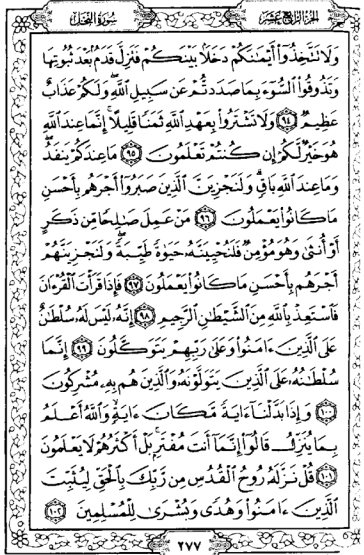 سُورَةُ النَّحْلِ
الجُزْءُ الرَّابِعَ عَشَرَ
وَلَا تَتَّخِذُوٓا۟ أَيْمَٰنَكُمْ دَخَلًۢا بَيْنَكُمْ فَتَزِلَّ قَدَمٌۢ بَعْدَ ثُبُوتِهَا
وَتَذُوقُوا۟ ٱلسُّوٓءَ بِمَا صَدَدتُّمْ عَن سَبِيلِ ٱللَّهِ وَلَكُمْ عَذَابٌ
عَظِيمٌ ٩٤ وَلَا تَشْتَرُوا۟ بِعَهْدِ ٱللَّهِ ثَمَنًا قَلِيلًا إِنَّمَا عِندَ ٱللَّهِ
هُوَ خَيْرٌ لَّكُمْ إِن كُنتُمْ تَعْلَمُونَ ٩٥ مَا عِندَكُمْ يَنفَدُ
وَمَا عِندَ ٱللَّهِ بَاقٍ وَلَنَجْزِيَنَّ ٱلَّذِينَ صَبَرُوٓا۟ أَجْرَهُم بِأَحْسَنِ
مَا كَانُوا۟ يَعْمَلُونَ ٩٦ مَنْ عَمِلَ صَٰلِحًا مِّن ذَكَرٍ
أَوْ أُنثَىٰ وَهُوَ مُؤْمِنٌ فَلَنُحْيِيَنَّهُۥ حَيَوٰةً طَيِّبَةً وَلَنَجْزِيَنَّهُمْ
أَجْرَهُم بِأَحْسَنِ مَا كَانُوا۟ يَعْمَلُونَ ٩٧ فَإِذَا قَرَأْتَ ٱلْقُرْءَانَ
فَٱسْتَعِذْ بِٱللَّهِ مِنَ ٱلشَّيْطَٰنِ ٱلرَّجِيمِ ٩٨ إِنَّهُۥ لَيْسَ لَهُۥ سُلْطَٰنٌ
عَلَى ٱلَّذِينَ ءَامَنُوا۟ وَعَلَىٰ رَبِّهِمْ يَتَوَكَّلُونَ ٩٩ إِنَّمَا
سُلْطَٰنُهُۥ عَلَى ٱلَّذِينَ يَتَوَلَّوْنَهُۥ وَٱلَّذِينَ هُم بِهِۦ مُشْرِكُونَ
١٠٠ وَإِذَا بَدَّلْنَآ ءَايَةً مَّكَانَ ءَايَةٍ وَٱللَّهُ أَعْلَمُ
بِمَا يُنَزِّلُ قَالُوٓا۟ إِنَّمَآ أَنتَ مُفْتَرٍۭ بَلْ أَكْثَرُهُمْ لَا يَعْلَمُونَ
١٠١ قُلْ نَزَّلَهُۥ رُوحُ ٱلْقُدُسِ مِن رَّبِّكَ بِٱلْحَقِّ لِيُثَبِّتَ
ٱلَّذِينَ ءَامَنُوا۟ وَهُدًى وَبُشْرَىٰ لِلْمُسْلِمِينَ ١٠٢
٢٧٧